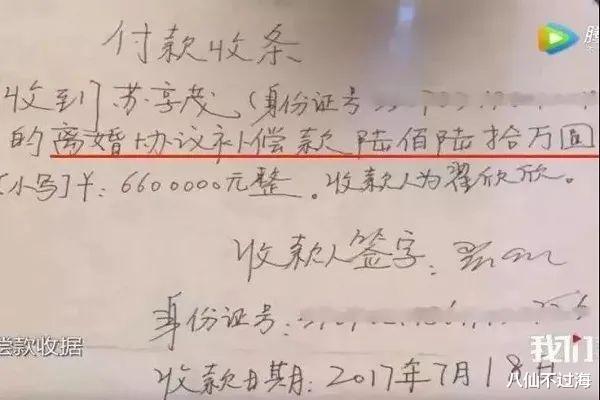 付款收条
收到苏享茂（身份证号
的离婚协议补偿款陆佰陆拾万圆
[小写]￥：6600000元整。收款人为翟欣欣。
收款人签字：
身份证号：
偿款收据
我们
收款日期：2017年7月18日
八仙不过海